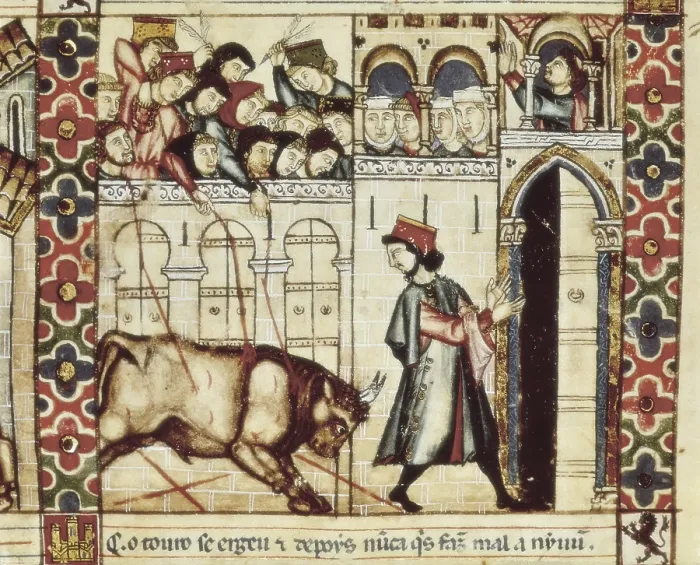 C. o touro se ergeu ⁊ depoys nũca q̄s faz̄ mal a nỹuũ.